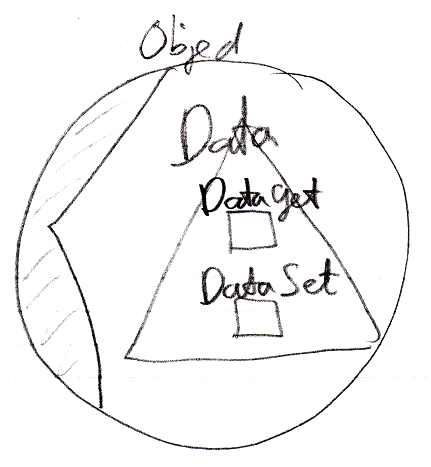 Object
Data
Data get
Data Set